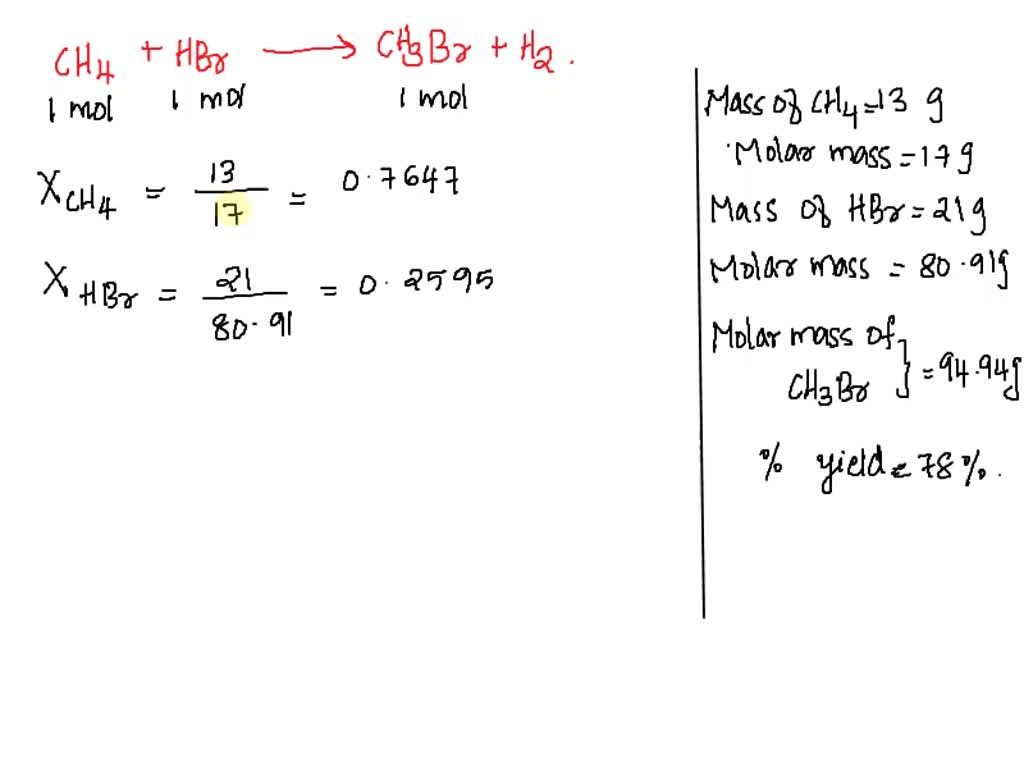 CH4 + HBr ⟶ CH3Br + H2.
1 mol 1 mol 1 mol
XCH4 = 13/17 = 0.7647
XHBr = 21/80.91 = 0.2595
Mass of CH4=13 g
Molar mass=17g
Mass of HBr=21g
Molar mass = 80.91g
Molar mass of
CH3Br } = 94.94g
% yield = 78%.